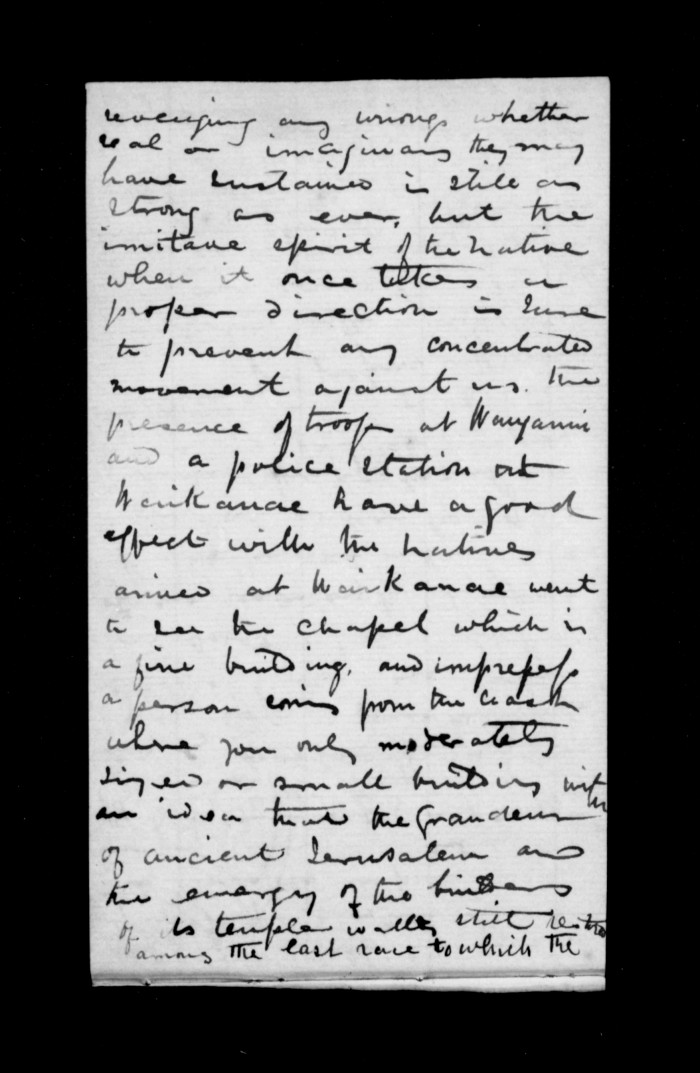 revenging any wrongs whether
real or imaginary they may
have sustained is still as
strong as ever, but the
imitave spirit of the Native
when it once takes a
proper direction is sure
to prevent any concentrated
movement against us. The
presence of troops at Wanganui
and a police station at
Waikanae have a good
effect with the natives
arrived at Waikanae went
to see the chapel which is
a fine building, and impresses
a person coming from the
where you only moderately
sized or small building with
an idea that the Grandeur
of ancient Jerusalem and
the emergy of the builders
of its temple walls still
among the last race to which the